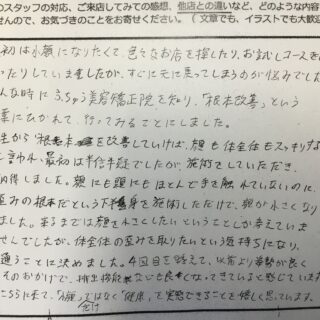 のスタッフの対応、ご来店してみての感想、他店との違いなど、どのような内容
せんので、お気づきのことをお寄せください。（文章でも、イラストでも大歓迎
初は小顔になりたくて、色々なお店を探したり、お試しコースを
ったりしていましたが、すぐに元に戻ってしまうのが悩みでした
んな時に、ふちゅう美容矯正院を知り、「根本改善」という
葉にひかれて、行ってみることにしました。
生から「根本を改善していけば、顔も体全体もスッキリする
と言われ、最初は半信半疑でしたが、施術をしていただき、
納得しました。顔にも頭にもほとんど手を触れていないのに、
歪みの根本だという下半身を施術しただけで、顔が小さくな
ました。来るまでは顔を小さくしたいということしか考えていま
せんでしたが、体全体の歪みを取りたいという気持ちになり、
通うことに決めました。4回目を終えて、以前より姿勢が良く
そのおかげで、排出機能なども良くなってきていると感じています
こちらに来て、「小顔」だけではなく「健康」を実感できることを嬉しく思っています。